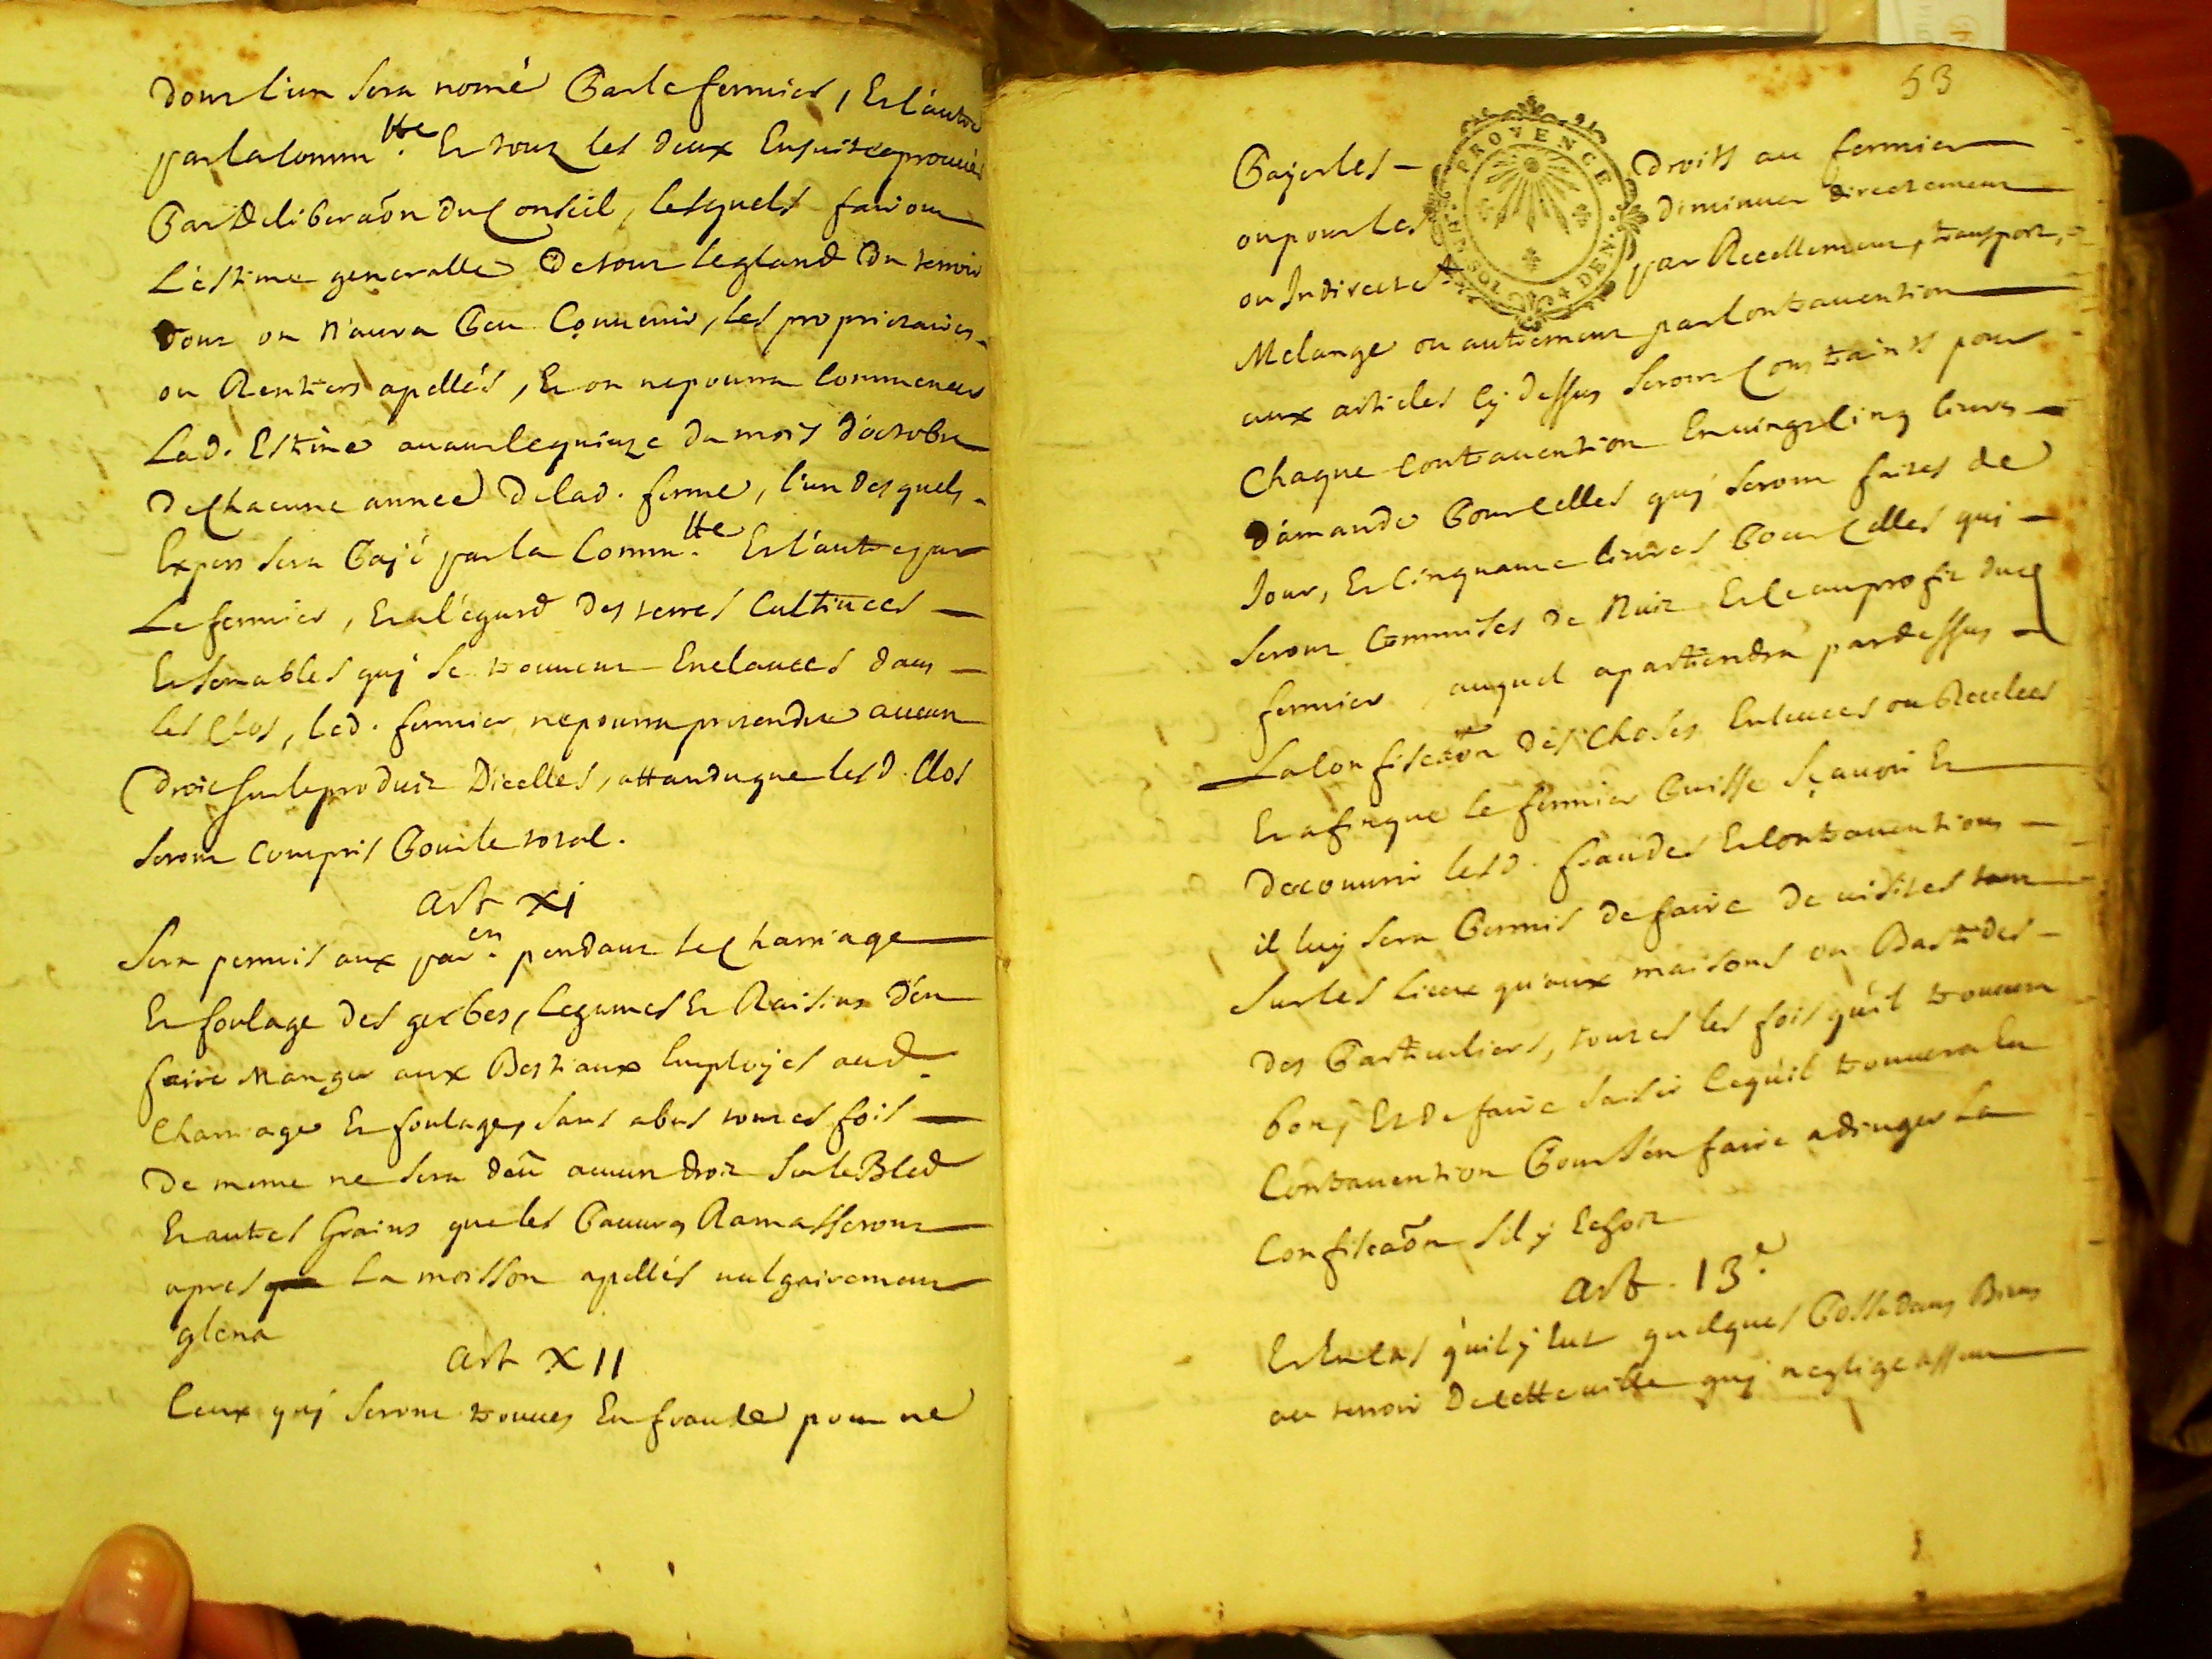 Dont l'un sera nomé Par le fermier, Et l'autre
par la Comm.tte Et tous les deux Ensuite aprouvés
Par Deliberaõn du Conseil, lesquels fairont
L'estime generalle De tout le gland Du terroir
Dont on N'aura Peu Convenir, les proprietaires
ou Rentiers apellés, Et on ne pourra Commencer
Lad. Estime avant le quinze du mois d'octobre
De Chacune année De lad. ferme, l'un desquels
Expers sera Payé par la Comm.tte Et l'autre par
Le fermier, Et a l'égard des terres Cultivées
Et semables quy se trouvent Enclavées dans
les Clos, led. fermier ne pourra pretendre aucun
Droit sur le produit D'icelles, attandu que lesd. Clos
seront compris Pour le total.
Art xi
Sera permis aux par.ers pendant le Charriage
Et foulage des gerbes, legumes Et Raisins D'en
faire Manger aux Bestiaux Employés aud.
Charriage Et foulage, sans abus toutes fois
De meme ne sera deü aucun droit sur le Bled
Et autres Grains que les Pauvres Ramasseront
apres la moisson apellés vulgairement
glena
Art XII
Ceux quy seront trouvés En fraude pour ne
53
Payer les droits au fermier
ou pour les diminuer directement
ou Indirect.t par Recellement, transport,
PROVENCE
UN SOL 4 DEN.
Melange ou autrement par Contravention
aux articles Cy dessus seront Contraints pour
Chaque Contravention En vingt Cinq livres
D'amande Pour Celles quy seront faites de
Jour, Et Cinquante livres Pour Celles qui
seront Commises de Nuit Et Ce au profit dud
fermier, auquel apartiendra par dessus
La Confiscaõn des Choses Enlevées ou Recelees
Et afin que le fermier Puisse Sçavoir Et
decouvrir lesd. fraudes Et Contraventions
il luy sera Permis de faire de visites tant
sur les lieux qu'aux maisons ou Bastides
des Particuliers, toutes les fois qu'il trouvera
bon, Et de faire saisir Ce qu'il trouvera En
Contravention Pour s'en faire adjuger la
Confiscaõn s'il y Echoit
Art. 13.e
Et En Cas qu'il y Eut quelques Possedans Biens
au terroir De Cette ville quy negligeassent